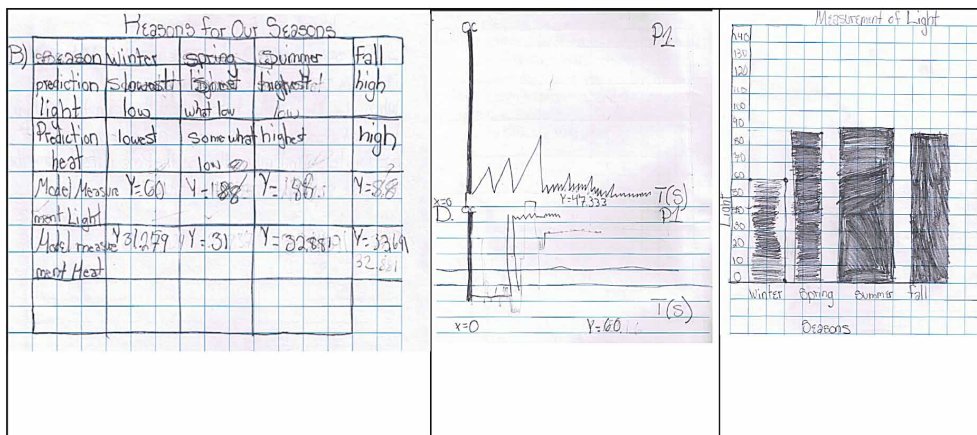 Reasons for Our Seasons
B) Season Winter spring Summer Fall
prediction light low what low low high
Prediction heat lowest somewhat low highest high
Model Measurement Light Y=60 Y=88 Y=88 Y=88
Model measurement Heat Y31.279 Y=31 Y=32.881 Y=
32.881
°C
P1
x=0
Y=47.333
T(S)
D.
°C
P1
T(S)
x=0
Y=60
Measurement of Light
140
130
120
110
100
90
80
70
60
50
40
30
20
10
0
Light
Winter Spring Summer Fall
Seasons